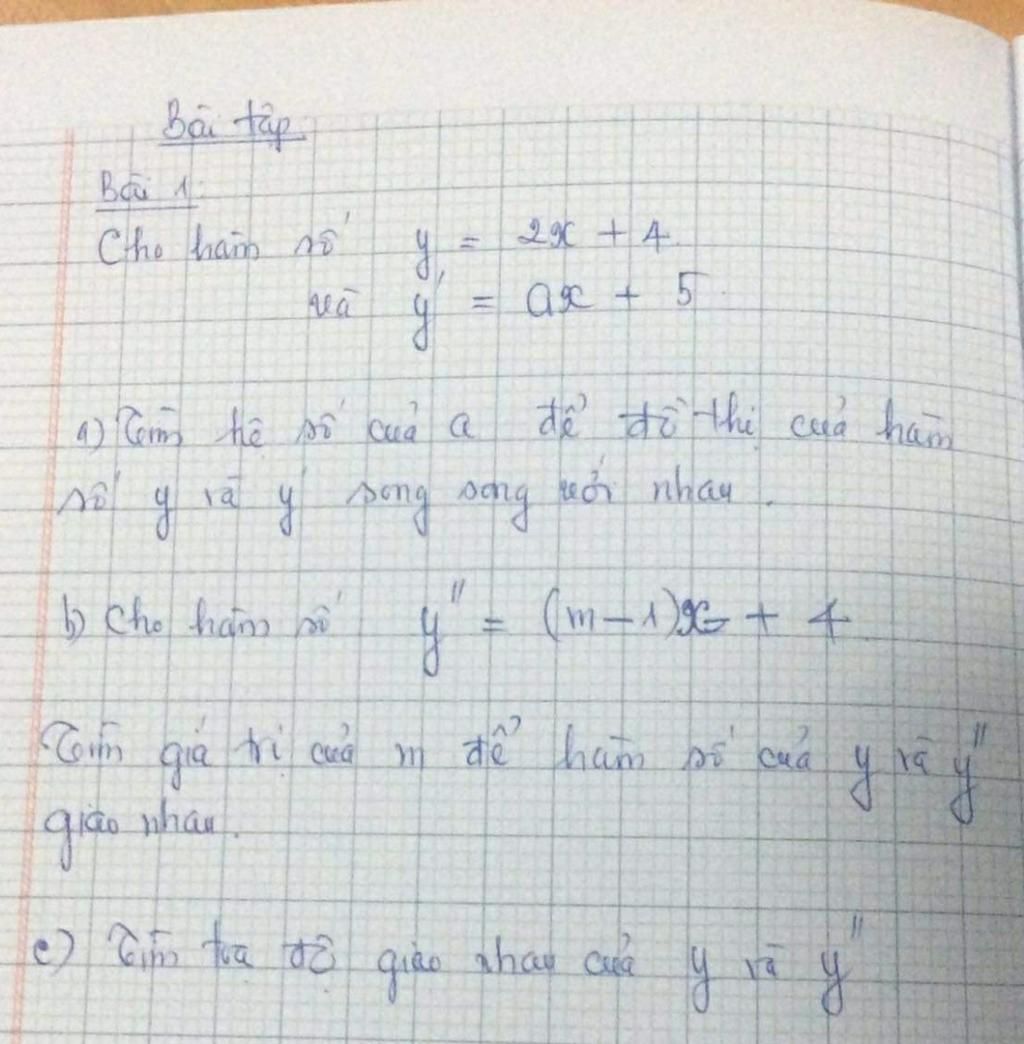 Bài tập
Bài 1
Cho hàm số y = 2x + 4
và y' = ax + 5
a) Tìm hệ số của a để đồ thị của hàm
số y và y' song song với nhau.
b) Cho hàm số y" = (m-1)x + 4
Tìm giá trị của m để hàm số của y và y"
giao nhau.
c) Tìm tọa độ giao nhau của y và y"